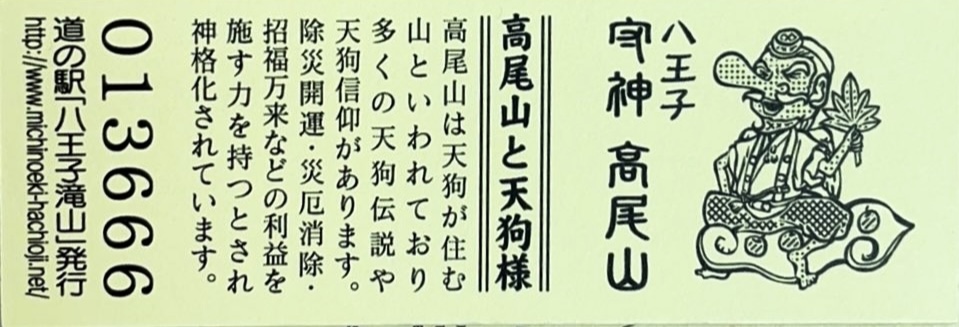 八王子
守神 高尾山
高尾山と天狗様
高尾山は天狗が住む
山といわれており
多くの天狗伝説や
天狗信仰があります。
除災開運・災厄消除・
招福万来などの利益を
施す力を持つとされ
神格化されています。
013666
道の駅「八王子滝山」発行
http://www.michinoeki-hachioji.net/